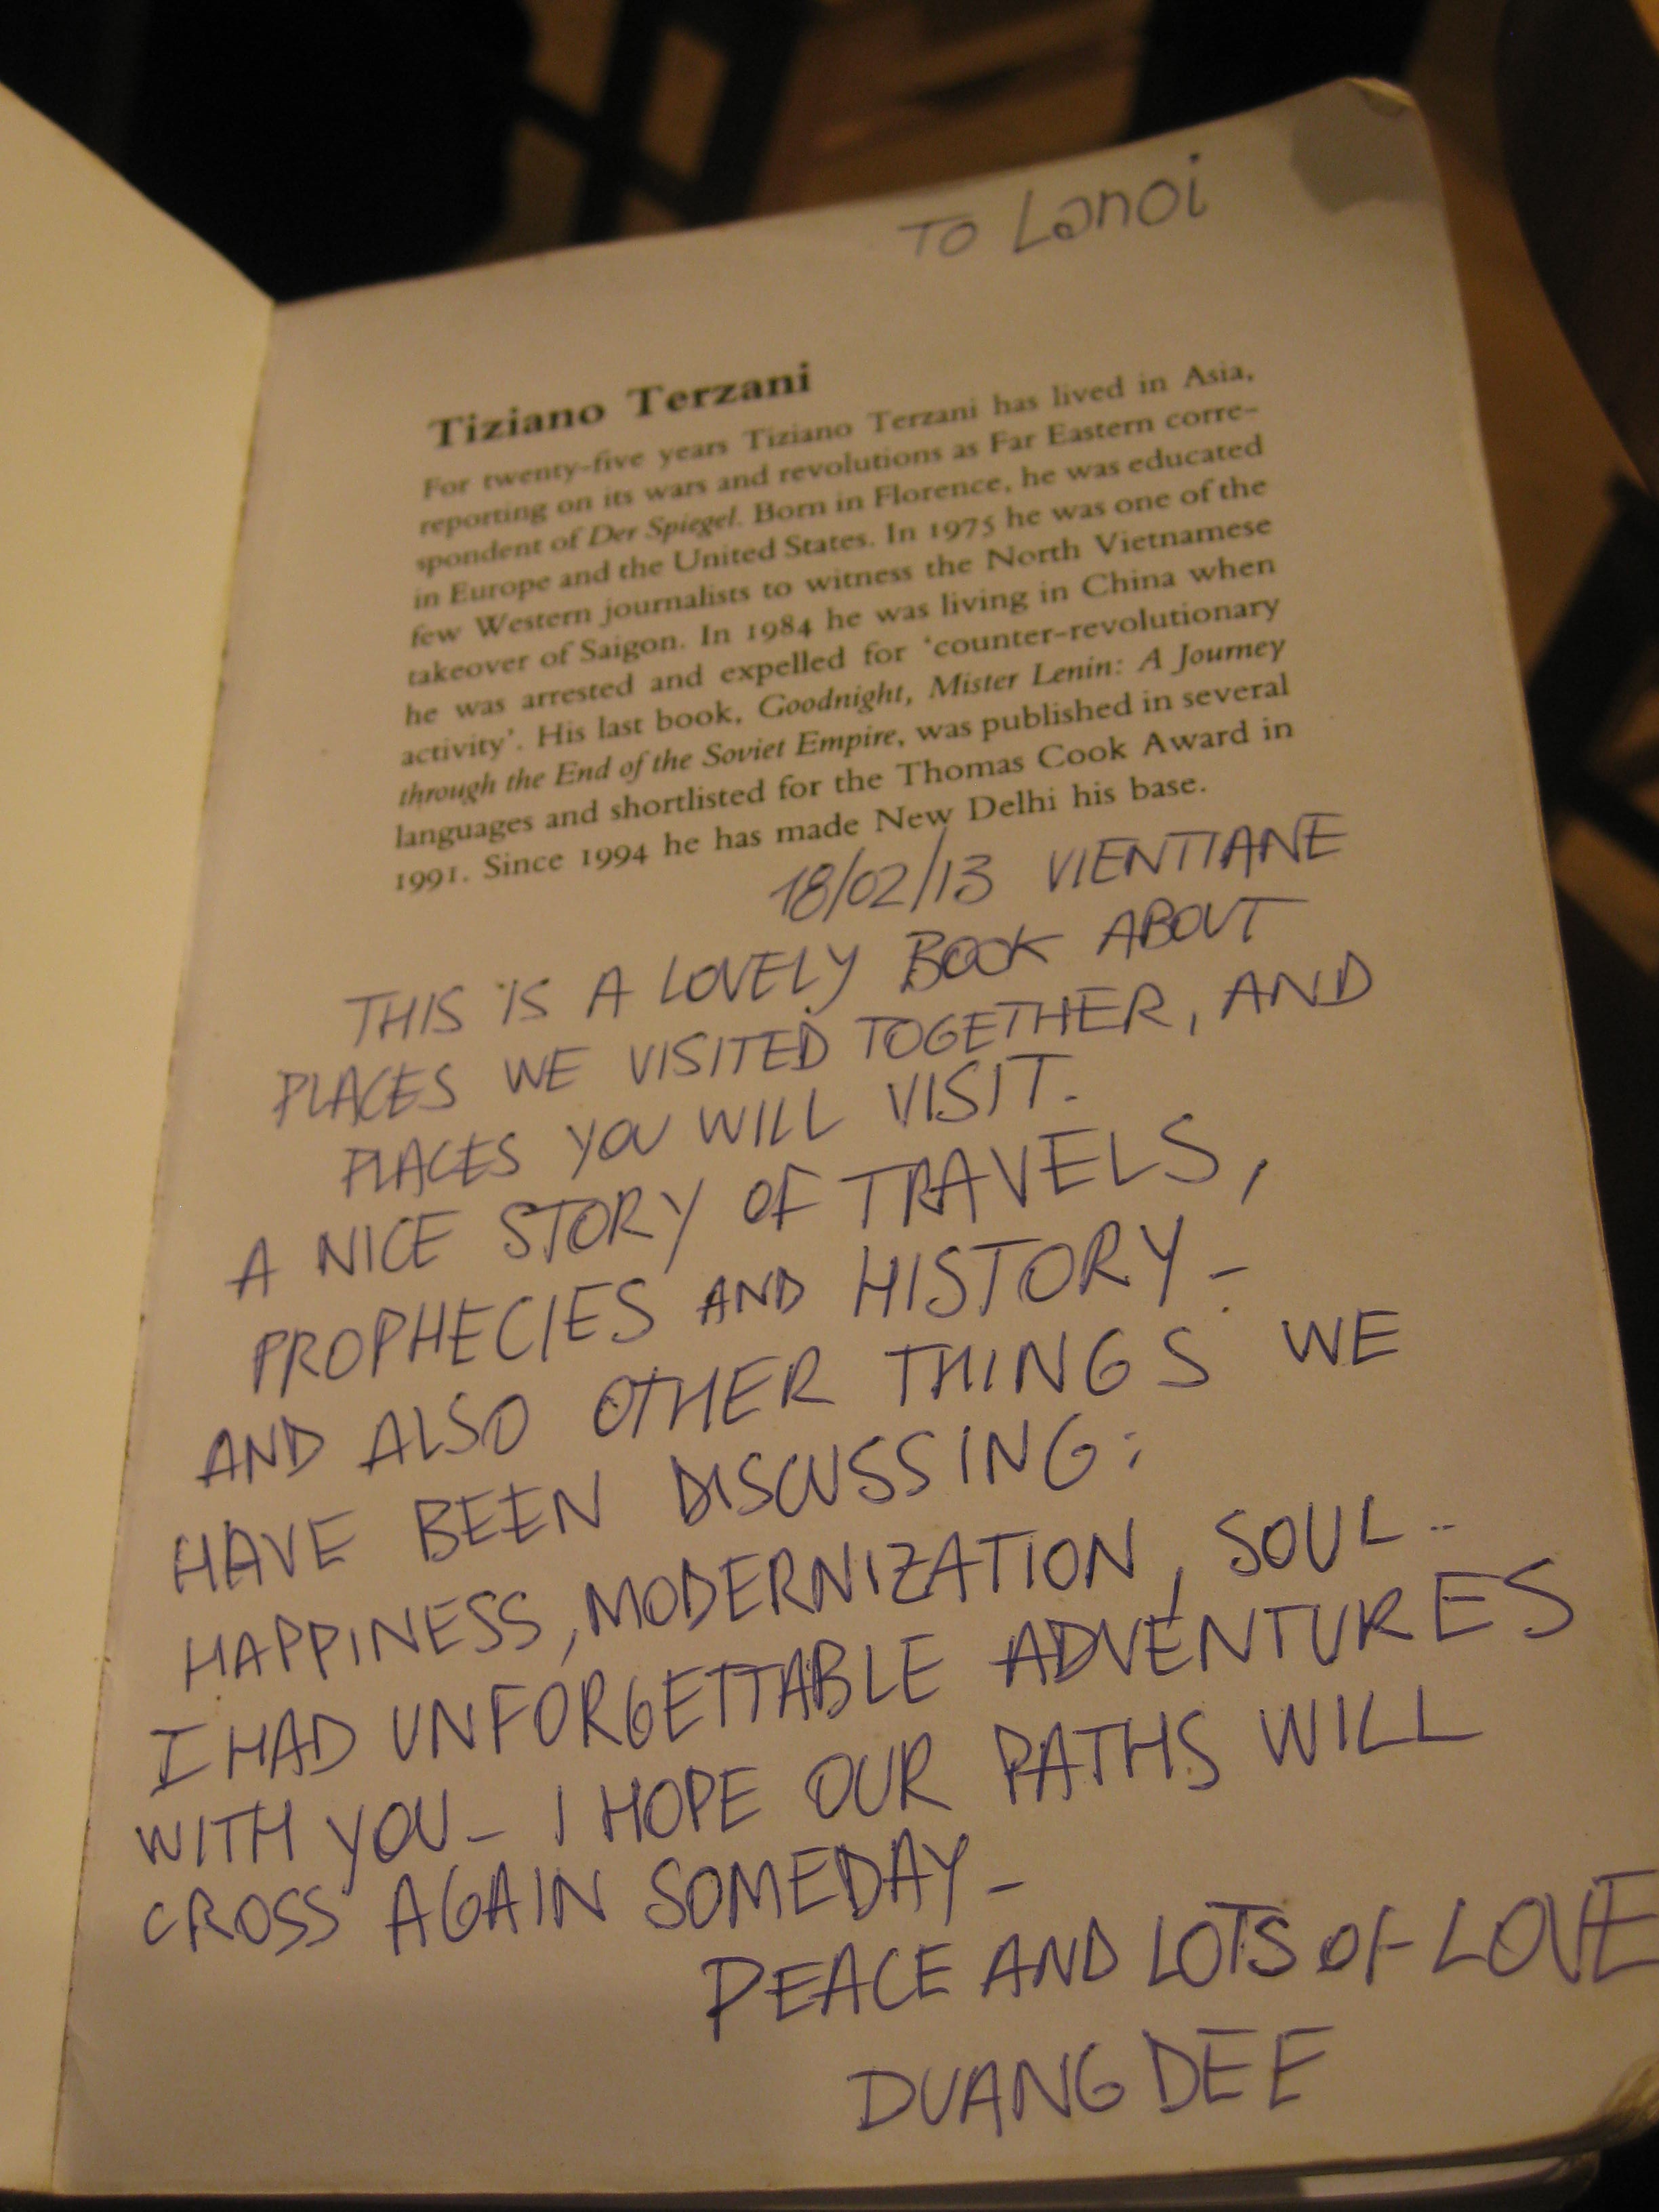 TO Lanoi
Tiziano Terzani
For twenty-five years Tiziano Terzani has lived in Asia,
reporting on its wars and revolutions as Far Eastern corre-
spondent of Der Spiegel. Born in Florence, he was educated
in Europe and the United States. In 1975 he was one of the
few Western journalists to witness the North Vietnamese
takeover of Saigon. In 1984 he was living in China when
he was arrested and expelled for 'counter-revolutionary
activity'. His last book, Goodnight, Mister Lenin: A Journey
through the End of the Soviet Empire, was published in several
languages and shortlisted for the Thomas Cook Award in
1991. Since 1994 he has made New Delhi his base.
18/02/13 VIENTIANE
THIS IS A LOVELY BOOK ABOUT
PLACES WE VISITED TOGETHER, AND
PLACES YOU WILL VISIT.
A NICE STORY OF TRAVELS,
PROPHECIES AND HISTORY -
AND ALSO OTHER THINGS WE
HAVE BEEN DISCUSSING:
HAPPINESS, MODERNIZATION, SOUL..
I HAD UNFORGETTABLE ADVENTURES
WITH YOU - I HOPE OUR PATHS WILL
CROSS AGAIN SOMEDAY -
PEACE AND LOTS OF LOVE
DUANG DEE